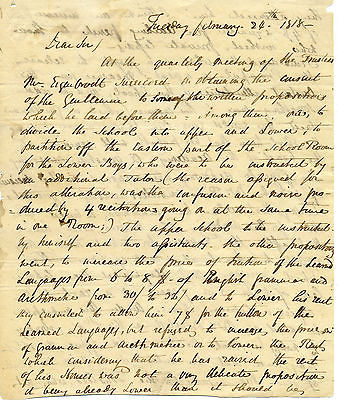 Tuesday february 24th 1818-
Dear Sir/
At the quarterly meeting of the Trustees
Mr Eigenbrodt succeeded in obtaining the consent
of the Gentlemen to some of the written propositions
which he laid before them - Among them, was, to
divide the School into upper and Lower; to
partition off the Eastern part of the School Room
for the Lower Boys, who were to be instructed by
additional Tutor (the reason assigned for
this alteration, was the confusion and noise pro-
duced by 4 recitations going on at the same time
in one Room;) The upper School to be instructed
by himself and two assistants. the other propositions
went, to increase the price of tuition of the Learned
Languages from 6 to 8 $. of English grammar and
arithmetic from 30/ to 36/, and to Lower his rent
they consented to allow him 7$ for the tuition of the
Learned Languages, but refused, to increase the price on
Grammar and Arithmetic or to lower the Rent
which considering that he has raised the rent
of his Houses was not a very delicate proposition
it being already lower than it should be,